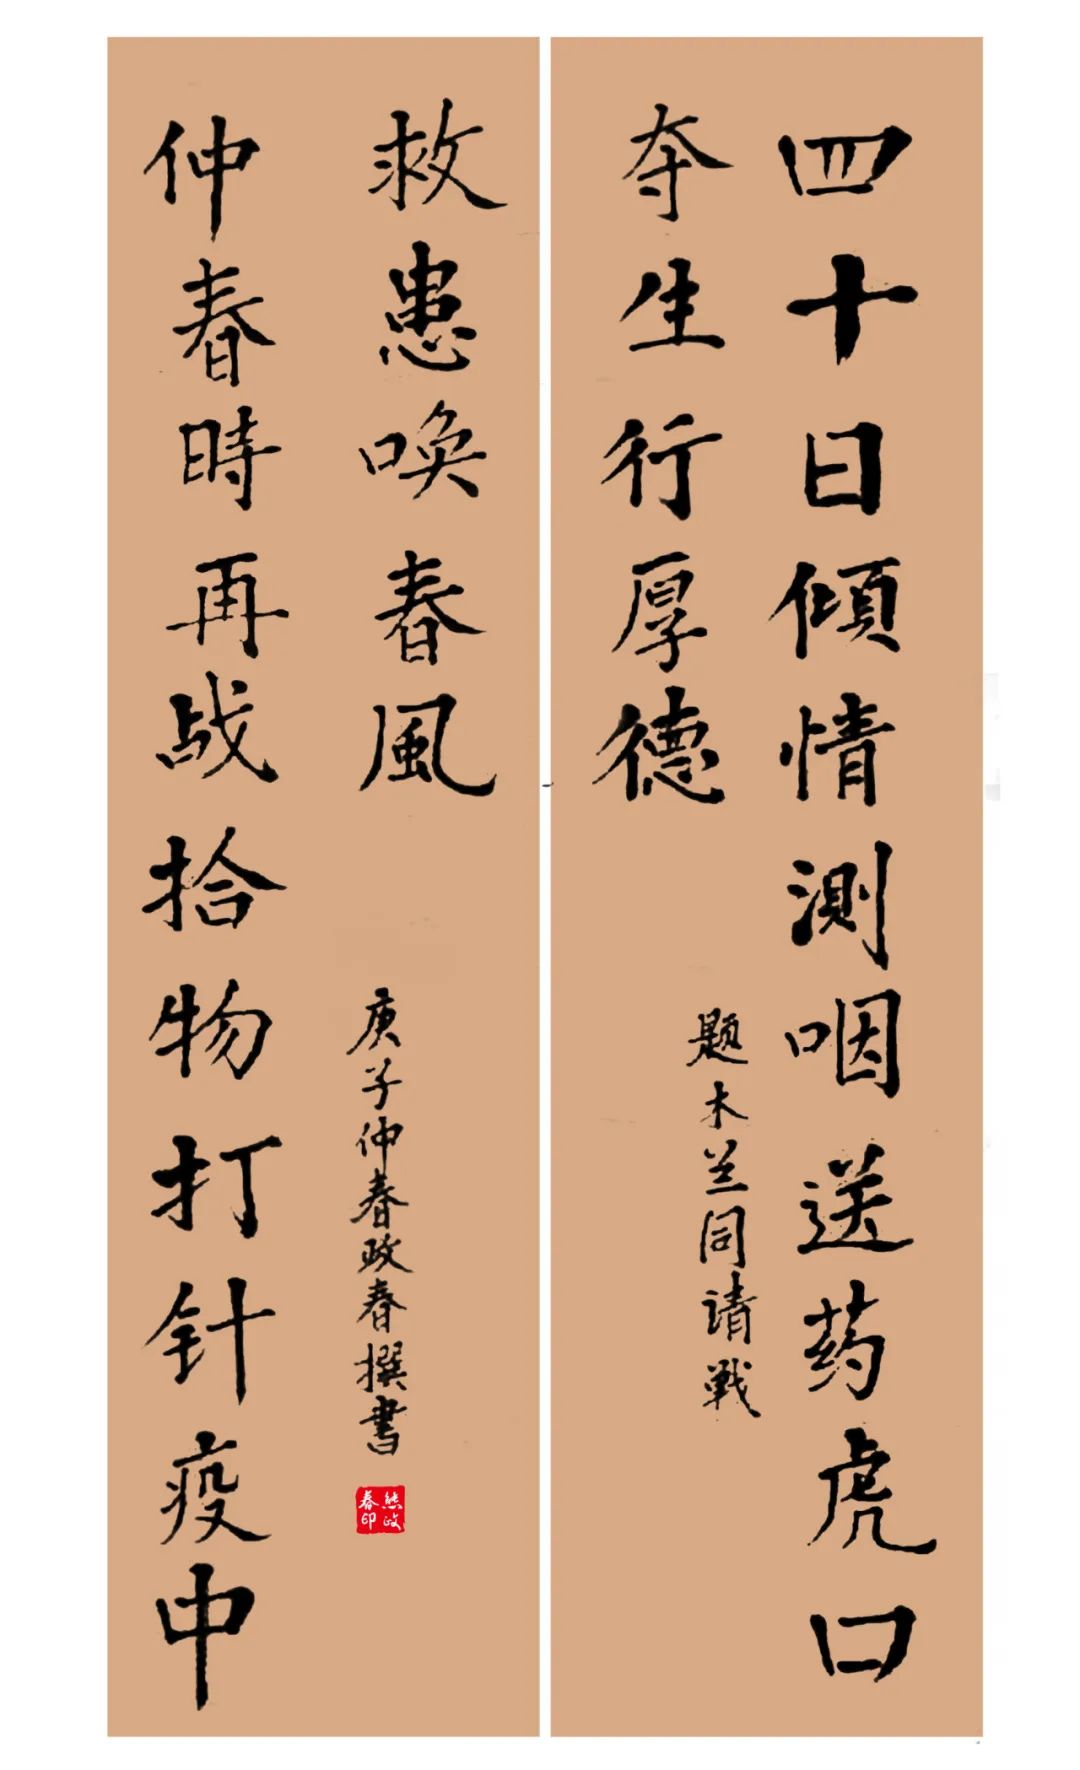 四十日傾情測咽送药虎口
夺生行厚德
题木兰同请戦
仲春時再战拾物打针疫中
救患唤春風
庚子仲春政春撰書
熊政春印